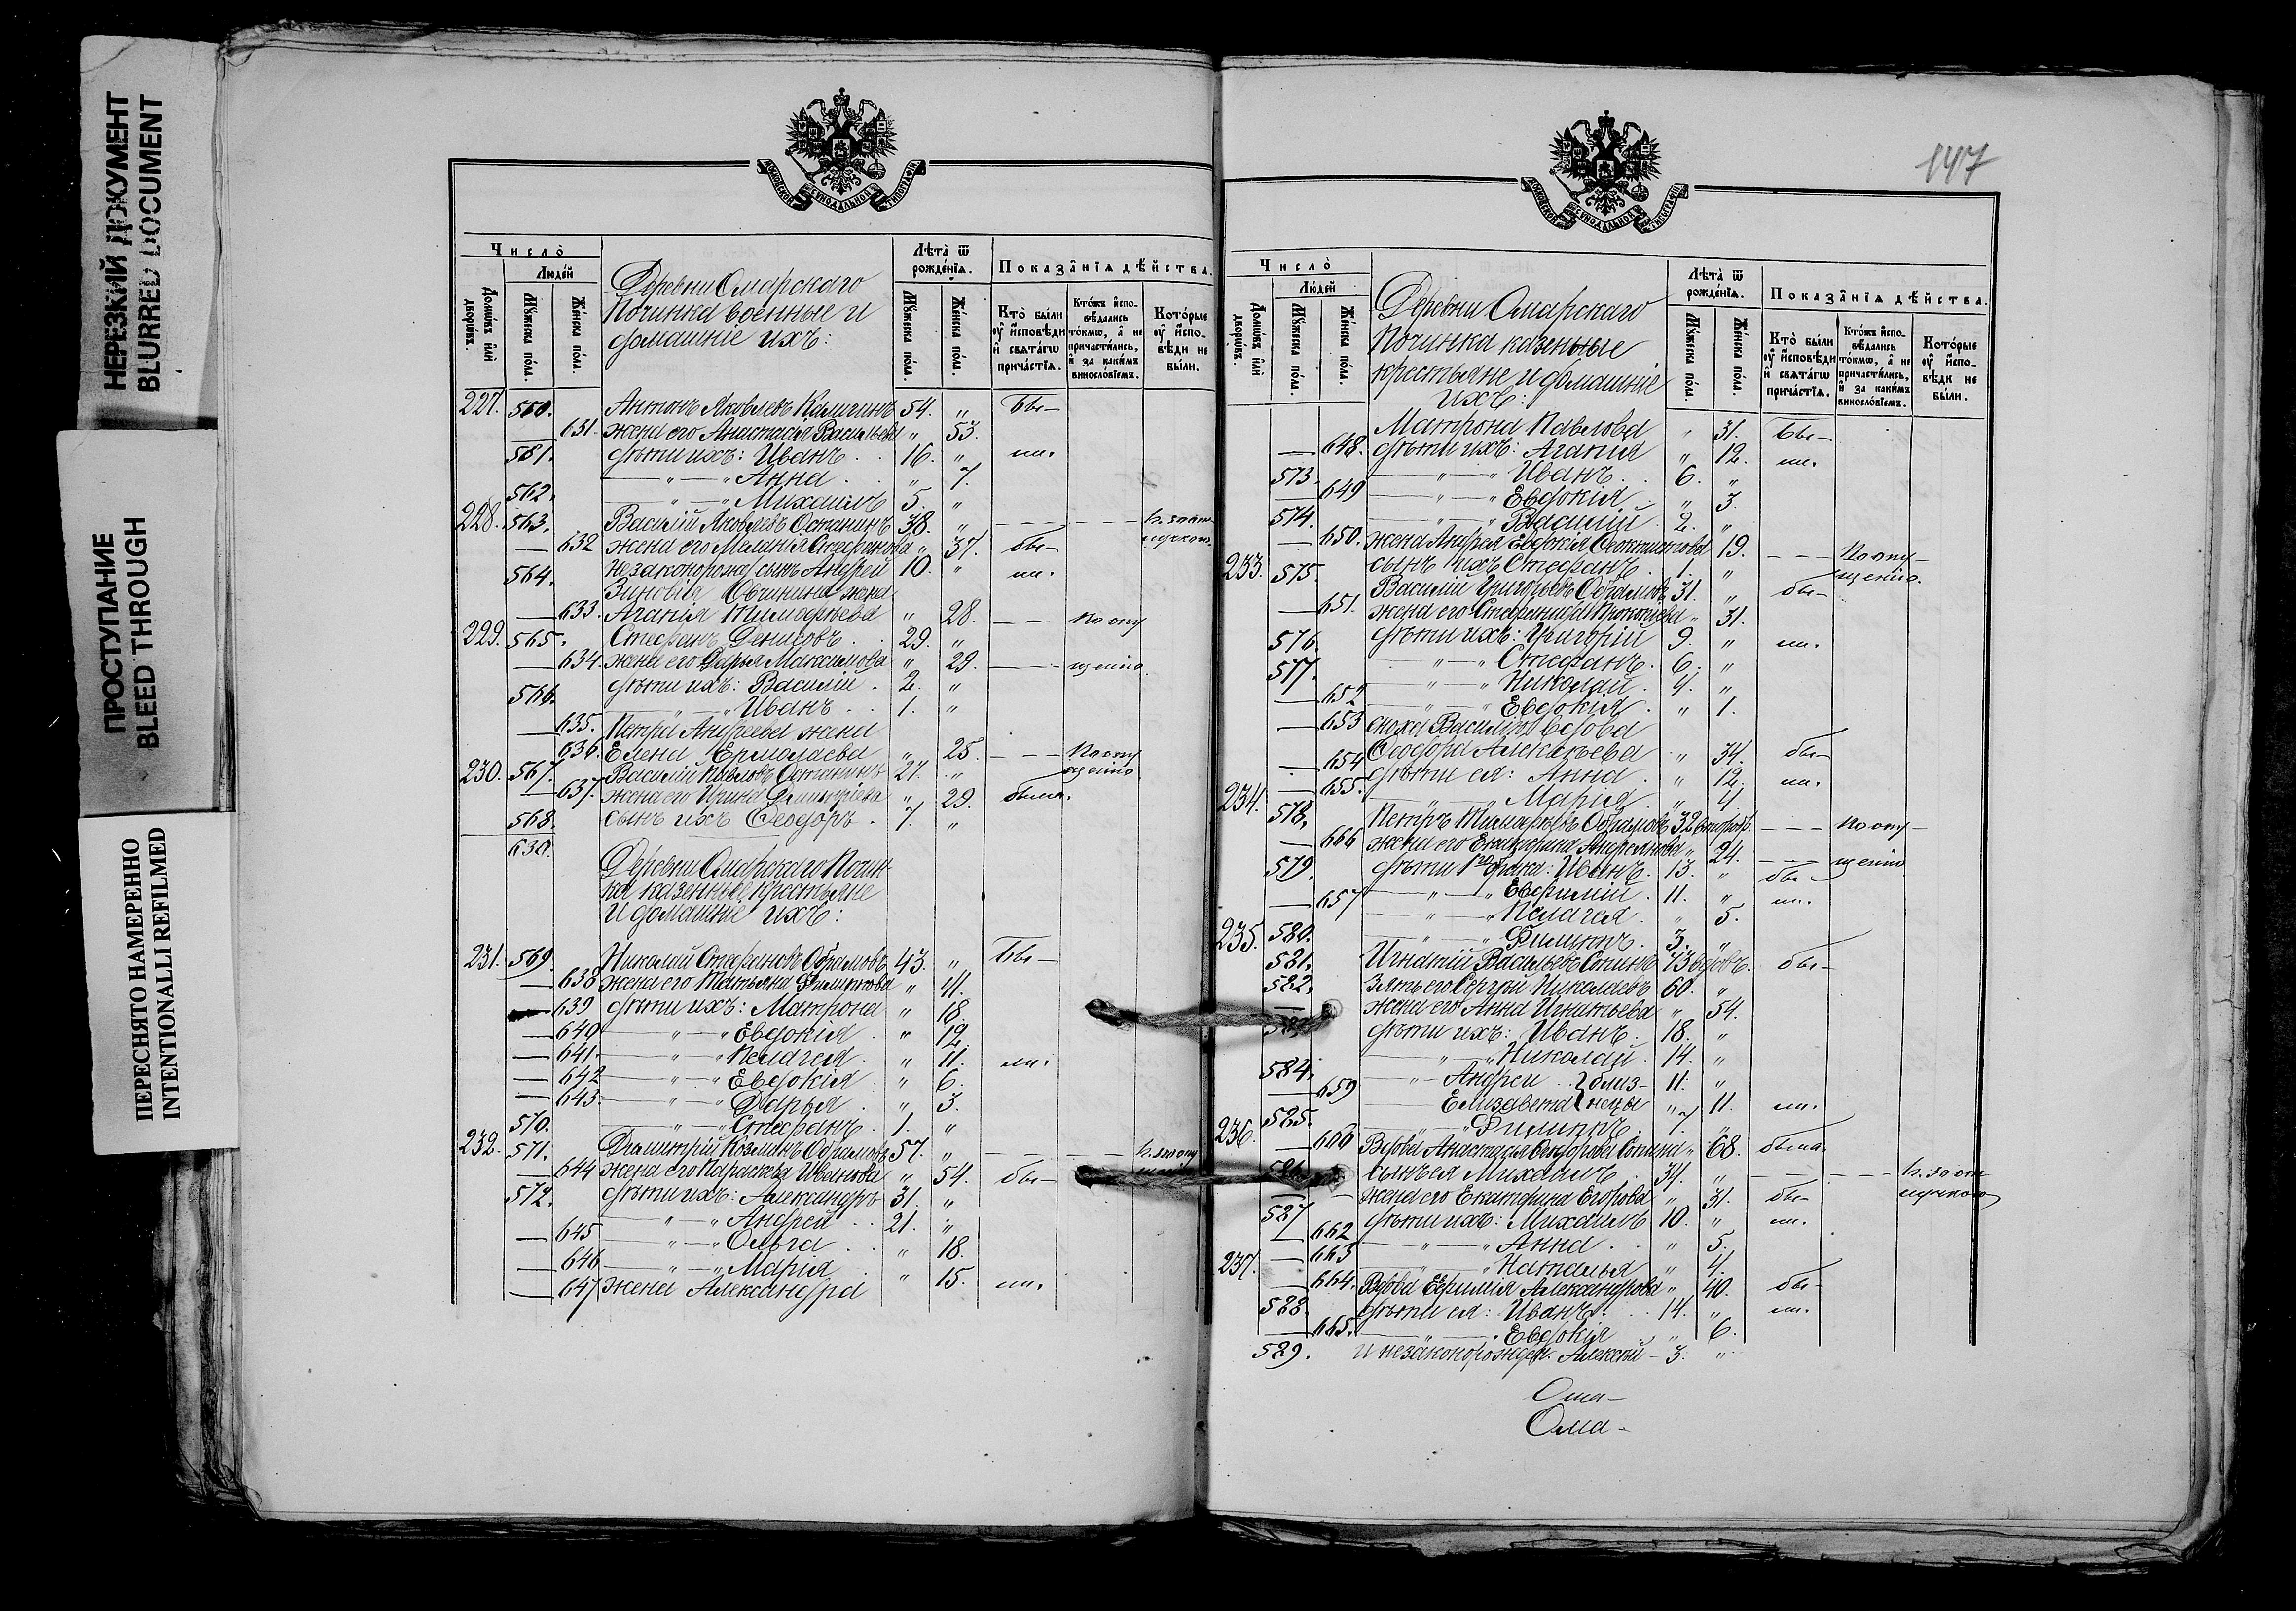 НЕРЕЗКИЙ ДОКУМЕНТ
BLURRED DOCUMENT
ПРОСТУПАНИЕ
BLEED THROUGH
ПЕРЕСНЯТО НАМЕРЕННО
INTENTIONALLI REFILMED
МОСКОВСКОЙ СѴНОДАЛЬНОЙ ТИПОГРАФІИ
Число̀
Людей
Домѡвъ или дворѡвъ.
Мꙋжеска пола.
Женска пола.
Деревни Омарскаго
Починка военные и
домашніе ихъ:
Лѣта ѿ рожденія.
Мꙋжеска пола.
Женска пола.
Показанія дѣйства.
Кто были оу исповѣди и свѧтагѡ причастія.
Ктожъ исповѣдались токмѡ, а не причастились, и за какимъ винословіемъ.
Которые оу исповѣди не были.
227. 560. Антонъ Яковлевъ Калигинъ 54. " Бы-
631. жена его Анастасія Васильева " 53.
561. дѣти ихъ: Иванъ 16. " ли.
—"—" Анна " 7.
562. —"—" Михаилъ 5. "
228. 563. Василій Яковлевъ Останинъ 38. " — — — — — — н. за от-
лучкою.
— 632 жена его Меланія Стефанова " 37. бы-
564. незаконорожд сынъ Андрей 10. " ли.
Зиновія Овчинина жена
— 633. Агапія Тимофѣева " 28. — — по опу
229. 565. Стефанъ Денисовъ 29. "
— 634. жена его Дарья Максимова " 29. — — щенію
566. дѣти ихъ: Василій 2. "
—"—" Иванъ 1. "
635. Петра Андреева жена
636. Елена Ермолаева " 25. — — По опу
щенію
230. 567. Василій Павловъ Останинъ 27. "
— 637. жена его Ирина Димитріева " 29. были.
568. сынъ ихъ Ѳеодоръ 7. "
630.
Деревни Омарскаго Почин-
ка казенные крестьяне
и домашніе ихъ:
231. 569. Николай Стефановъ Обрамовъ 43. " Бы-
— 638 жена его Татьяна Филиппова " 41.
— 639 дѣти ихъ: Матрона " 18.
— 640 —"—" Евдокія " 12.
— 641. —"—" Пелагея " 11. ли.
— 642 —"—" Евдокія " 6.
— 643. —"—" Дарья " 3.
570. —"—" Стефанъ 1. "
232. 571. Димитрій Козминъ Обрамовъ 57. " — — — — н. по опу
щенію
— 644 жена его Параскева Иванова " 54. бы-
572. дѣти ихъ: Александръ 31. "
—"—" Андрей 21. "
— 645 —"—" Ольга " 18.
— 646 —"—" Марія " 15. ли.
— 647 жена Александра
147
МОСКОВСКОЙ СѴНОДАЛЬНОЙ ТИПОГРАФІИ
Число̀
Людей
Домѡвъ или дворѡвъ.
Мꙋжеска пола.
Женска пола.
Деревни Омарскаго
Починка казенные
крестьяне и домашніе
ихъ:
Лѣта ѿ рожденія.
Мꙋжеска пола.
Женска пола.
Показанія дѣйства.
Кто были оу исповѣди и свѧтагѡ причастія.
Ктожъ исповѣдались токмѡ, а не причастились, и за какимъ винословіемъ.
Которые оу исповѣди не были.
Матрона Павлова " 31. Бы-
— 648. дѣти ихъ: Агапія " 12. ли.
573. —"—" Иванъ 6. "
— 649 —"—" Евдокія " 3.
574. —"—" Василій 2. "
— 650. жена Андрея Евдокія 19. — — — По опу-
щенію.
233. 575. сынъ ихъ Стефанъ 1. "
Василій Григорьевъ Обрамовъ 31. " бы-
— 651. жена его Стефанида Прокопьева " 31.
576. дѣти ихъ: Григорій 9. " ли.
577. —"—" Стефанъ 6. "
—"—" Николай 4. "
— 652 —"—" Евдокія " 1.
— 653 сноха Василія вдова
Ѳеодора Алексѣева " 34. бы-
— 654 дѣти ея: Анна " 12. ли.
— 655. —"—" Марія " 4.
234. 578. Петръ Тимофѣевъ Обрамовъ 32 — — — по опу-
— 666 жена его Екатерина Андреянова " 24. — — щенію
579. дѣти 1го брака: Иванъ 13. " бы-
—"—" Евфимій 11. " ли.
— 657 —"—" Пелагея " 5.
580. —"—" Филиппъ 3. "
235. 581. Игнатій Васильевъ Сопинъ 73 вдовъ. бы-
582. Зять его Сергѣй Николаевъ 60. "
жена его Анна Игнатьева " 54.
583. дѣти ихъ: Иванъ 18. "
—"—" Николай 14. "
584. —"— Андрей } близ- 11. "
— 659 Елизавета } нецы " 11. ли.
585. —"—" Филиппъ 7. "
236. — 660 Вдова Анастасія Ѳеодорова Сопина " 68. была
586. сынъ ея Михаилъ 34. " — — — — н. за от
лучкою
жена его Екатерина Егорова " 31. бы-
587 дѣти ихъ: Михаилъ 10. " ли.
— 662 —"—" Анна " 5.
— 663 —"—" Наталья " 4.
237. — 664. Вдова Евфимія Александрова " 40. бы-
588. дѣти ея: Иванъ 14. " ли.
— 665. —"—" Евдокія " 6.
589. и незаконорожден. Алексѣй - 3. "
Ома-
Ома-